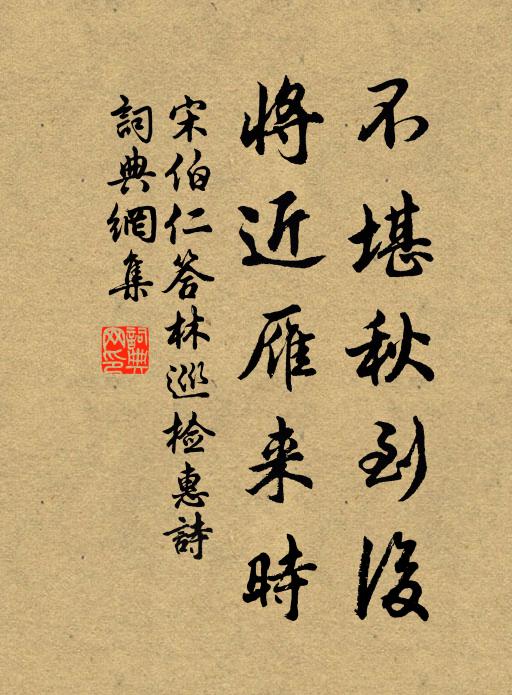 不堪秋到後
將近雁来時
宋伯仁答林巡檢惠詩
詞典網集
詞典网印